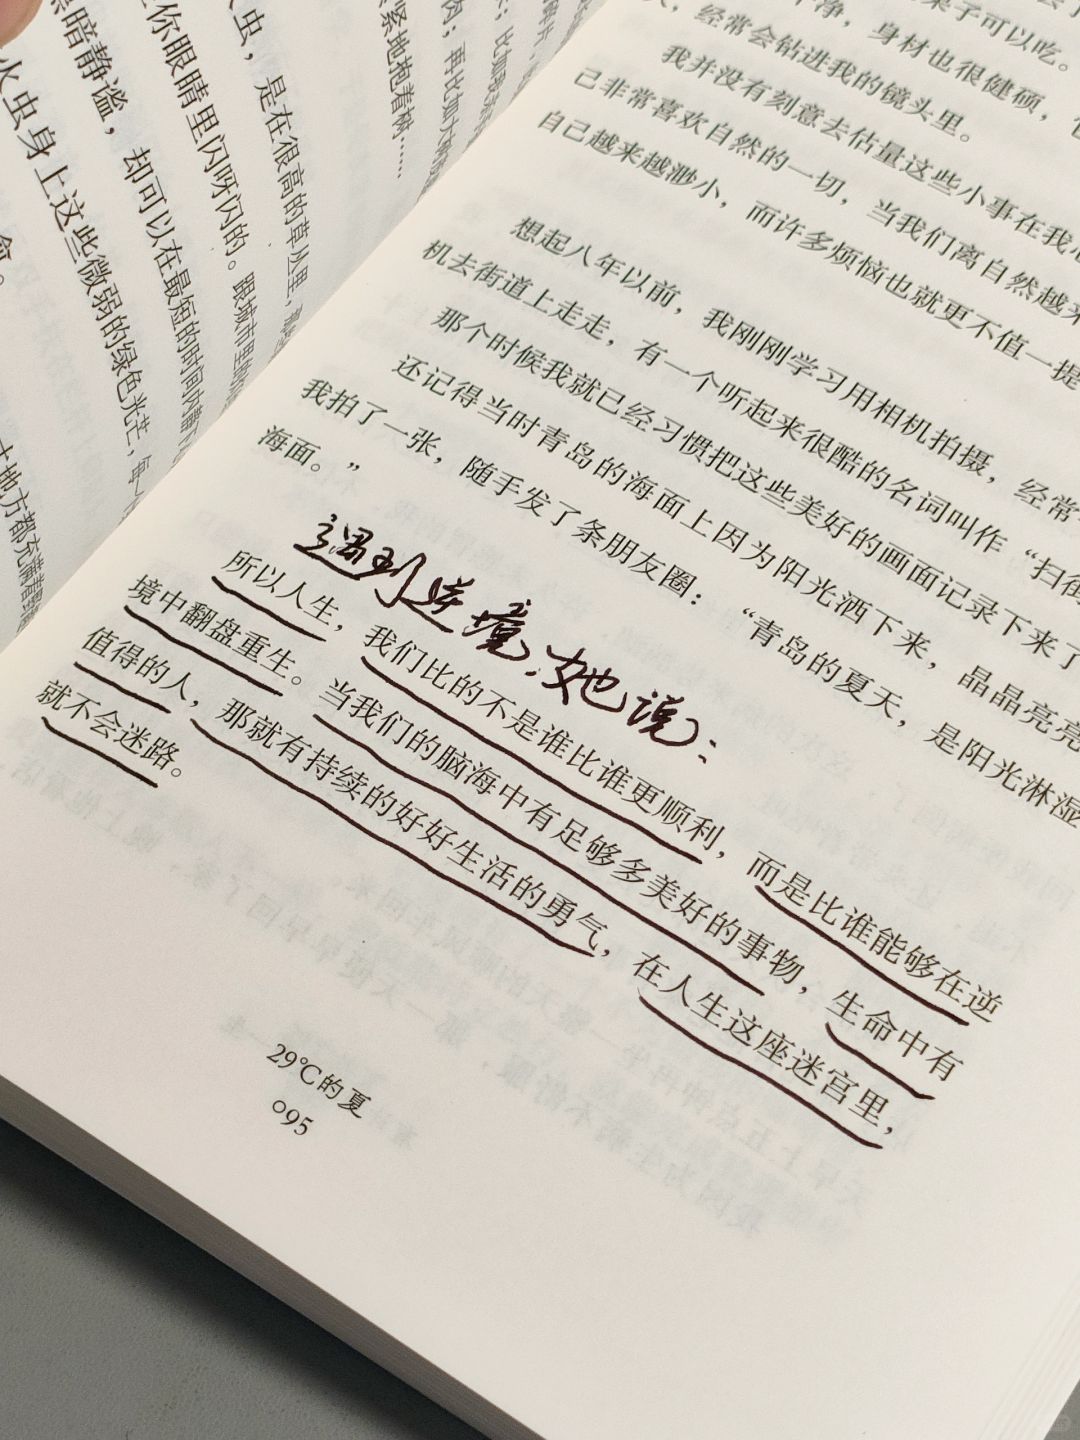 虫，是在很高的草丛里，
你眼睛里闪呀闪的。跟城市里
黑暗静谧，却可以在最短的时间内静下
火虫身上这些微弱的绿色光芒，每
地方都充满着
肉；再比如
紧地抱着树……
桌子可以吃。
净，身材也很健硕，
人，经常会钻进我的镜头里。
我并没有刻意去估量这些小事在我心
己非常喜欢自然的一切，当我们离自然越来
自己越来越渺小，而许多烦恼也就更不值一提
想起八年以前，我刚刚学习用相机拍摄，经常
机去街道上走走，有一个听起来很酷的名词叫作“扫街
那个时候我就已经习惯把这些美好的画面记录下来了
还记得当时青岛的海面上因为阳光洒下来，晶晶亮亮
我拍了一张，随手发了条朋友圈：“青岛的夏天，是阳光淋湿
海面。”
遇到逆境，她说：
所以人生，我们比的不是谁比谁更顺利，而是比谁能够在逆
境中翻盘重生。当我们的脑海中有足够多美好的事物，生命中有
值得的人，那就有持续的好好生活的勇气，在人生这座迷宫里，
就不会迷路。
29℃的夏
095